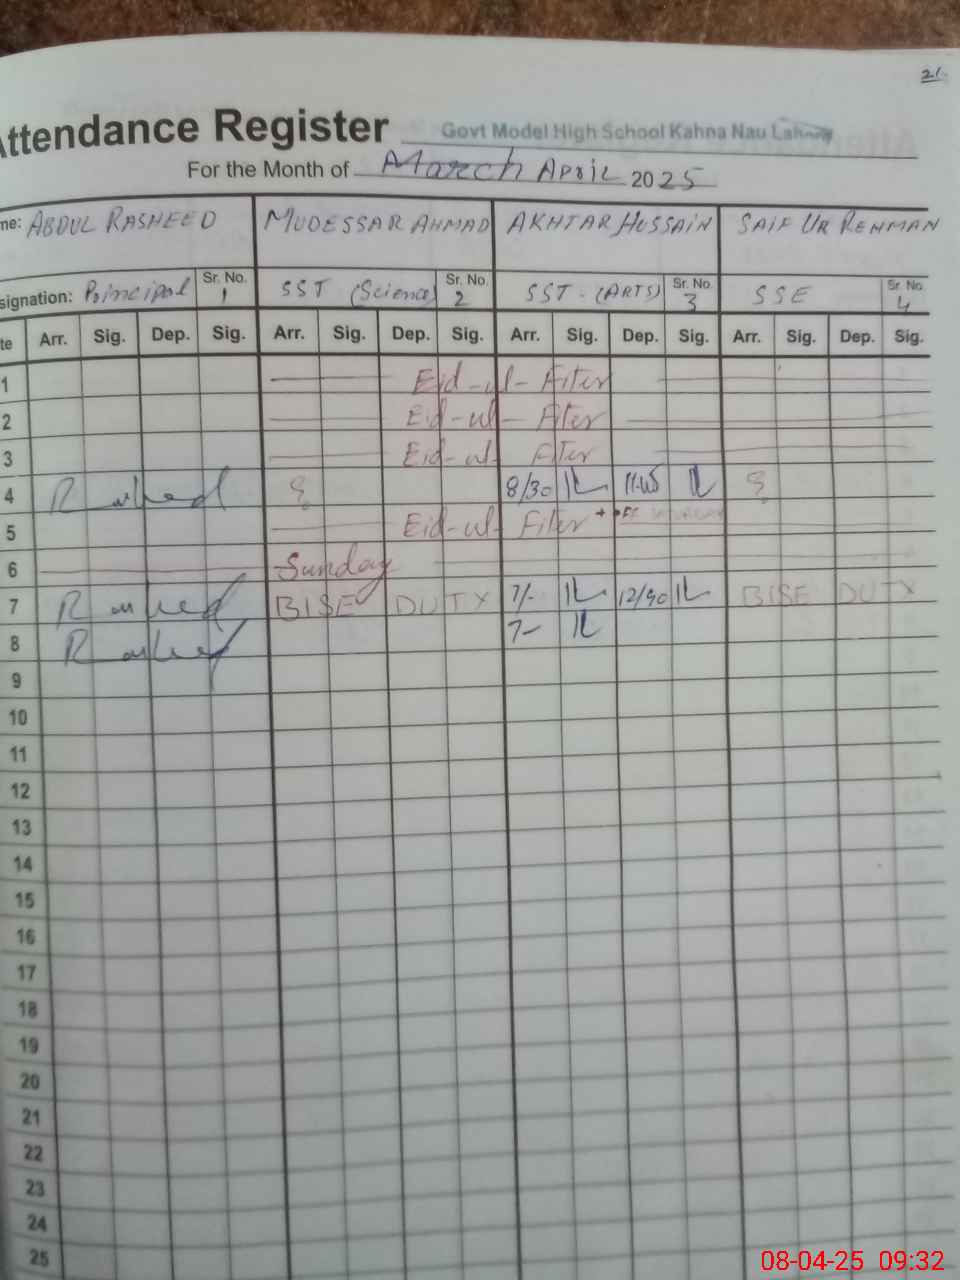 21
Attendance Register Govt Model High School Kahna Nau Lahore
For the Month of March April 2025
me: ABDUL RASHEED MUDESSAR AHMAD AKHTAR HUSSAIN SAIF UR REHMAN
signation: Principal Sr. No. 1 SST (Science) Sr. No. 2 SST - (ARTS) Sr. No. 3 SSE Sr. No. 4
te Arr. Sig. Dep. Sig. Arr. Sig. Dep. Sig. Arr. Sig. Dep. Sig. Arr. Sig. Dep. Sig.
1 Eid-ul-Fiter
2 Eid-ul-Fiter
3 Eid-ul Fiter
4 Rasheed 8/30 11.45
5 Eid-ul-Fiter + OFF SATURDAY
6 Sunday
7 Rasheed BISE DUTY 7/- 12/40 BISE DUTY
8 Rasheed 7-
9
10
11
12
13
14
15
16
17
18
19
20
21
22
23
24
25
08-04-25 09:32